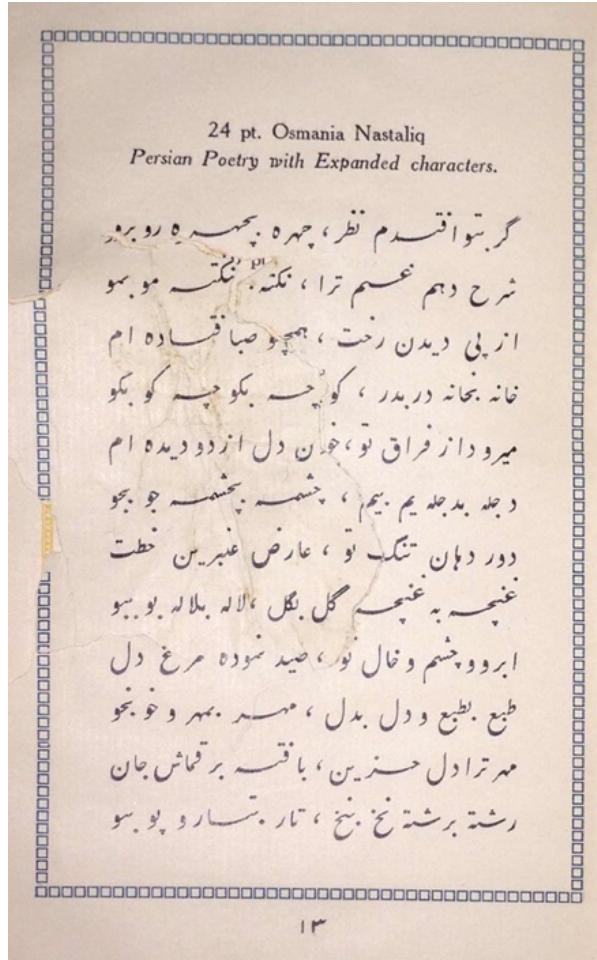 24 pt. Osmania Nastaliq
Persian Poetry with Expanded characters.
گر بتو افتدم نظر، چهره بچهرہ رو برو
شرح دهم غم ترا، نکته بنکته مو بمو
از پی دیدن رخت، همچو صبا فتاده ام
خانه بخانه در بدر، کوچه بکوچه کو بکو
میرود از فراق تو، خون دل از دو دیده ام
دجله بدجله یم بیم، چشمه بچشمه جو بجو
دور دهان تنگ تو، عارض عنبرین خطت
غنچه به غنچه گل بگل، لاله بلاله بو ببو
ابرو و چشم و خال تو، صید نموده مرغ دل
طبع بطبع و دل بدل، مهر بمهر و خو بخو
مهر ترا دل حزین، بافته بر قماش جان
رشتۀ برشتۀ نخ بنخ، تار بتار و پو بپو
۱۳